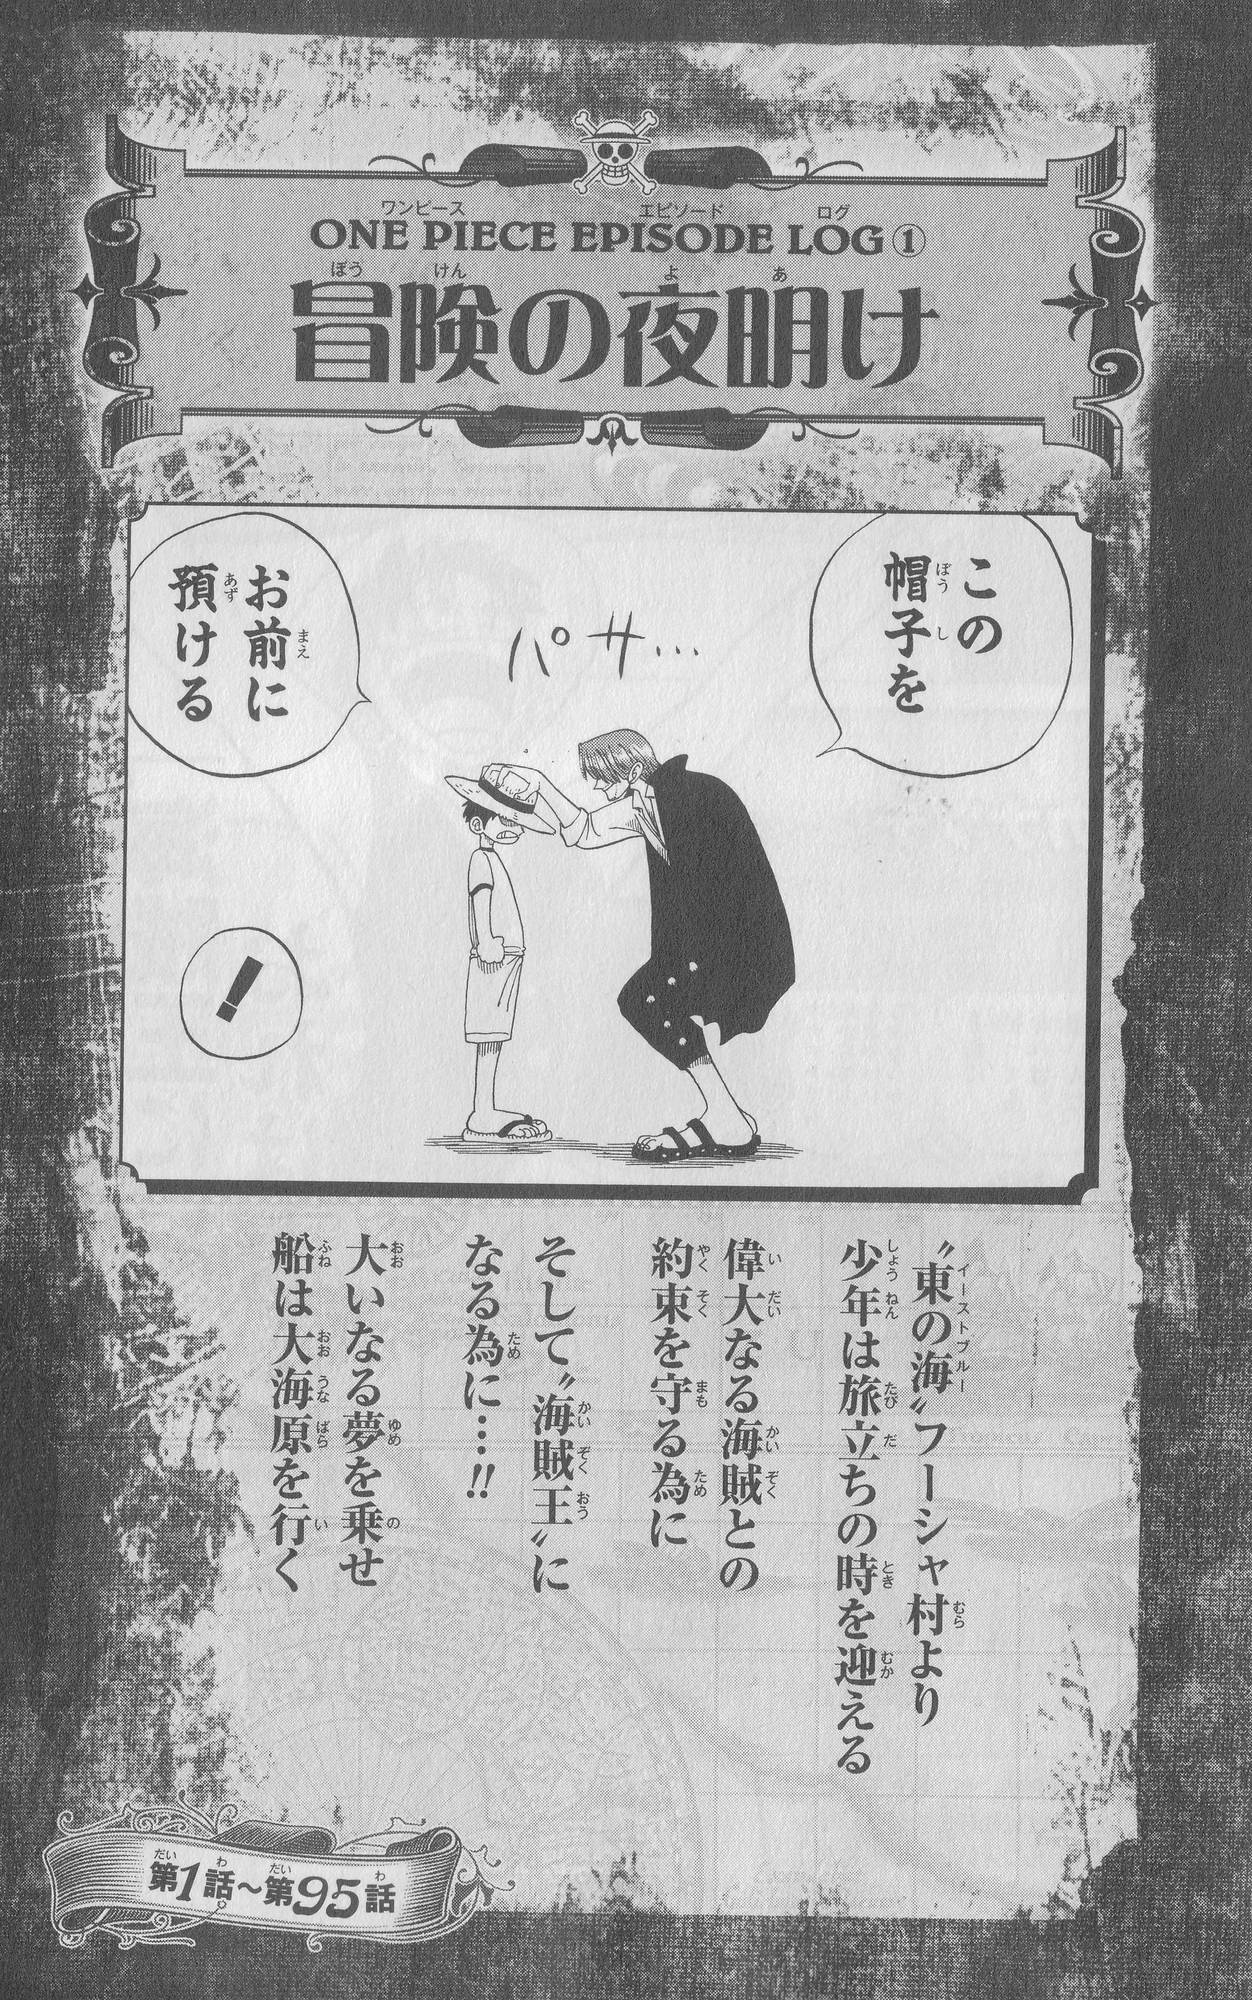 ONE PIECE EPISODE LOG①
冒険の夜明け
この
帽子を
パサ…
お前に
預ける
!
〝東の海〟フーシャ村より
少年は旅立ちの時を迎える
偉大なる海賊との
約束を守る為に
そして〝海賊王〟に
なる為に…‼
大いなる夢を乗せ
船は大海原を行く
第1話～第95話